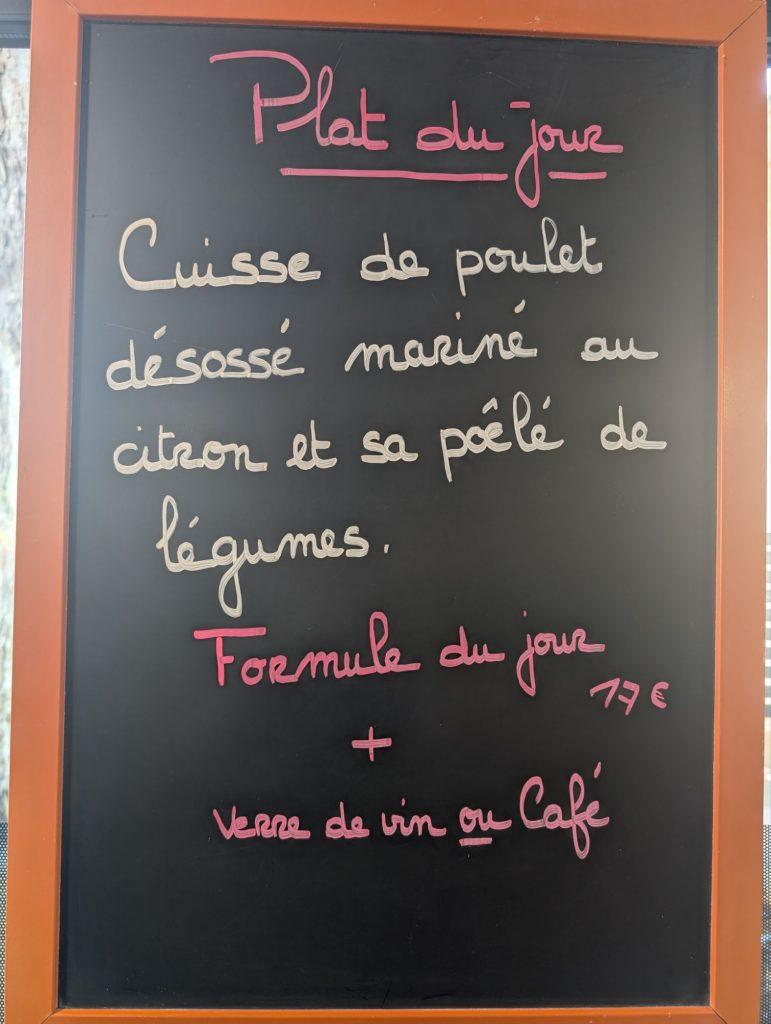 Plat du jour
Cuisse de poulet
désossé mariné au
citron et sa poêlé de
légumes.
Formule du jour
17 €
+
verre de vin ou Café